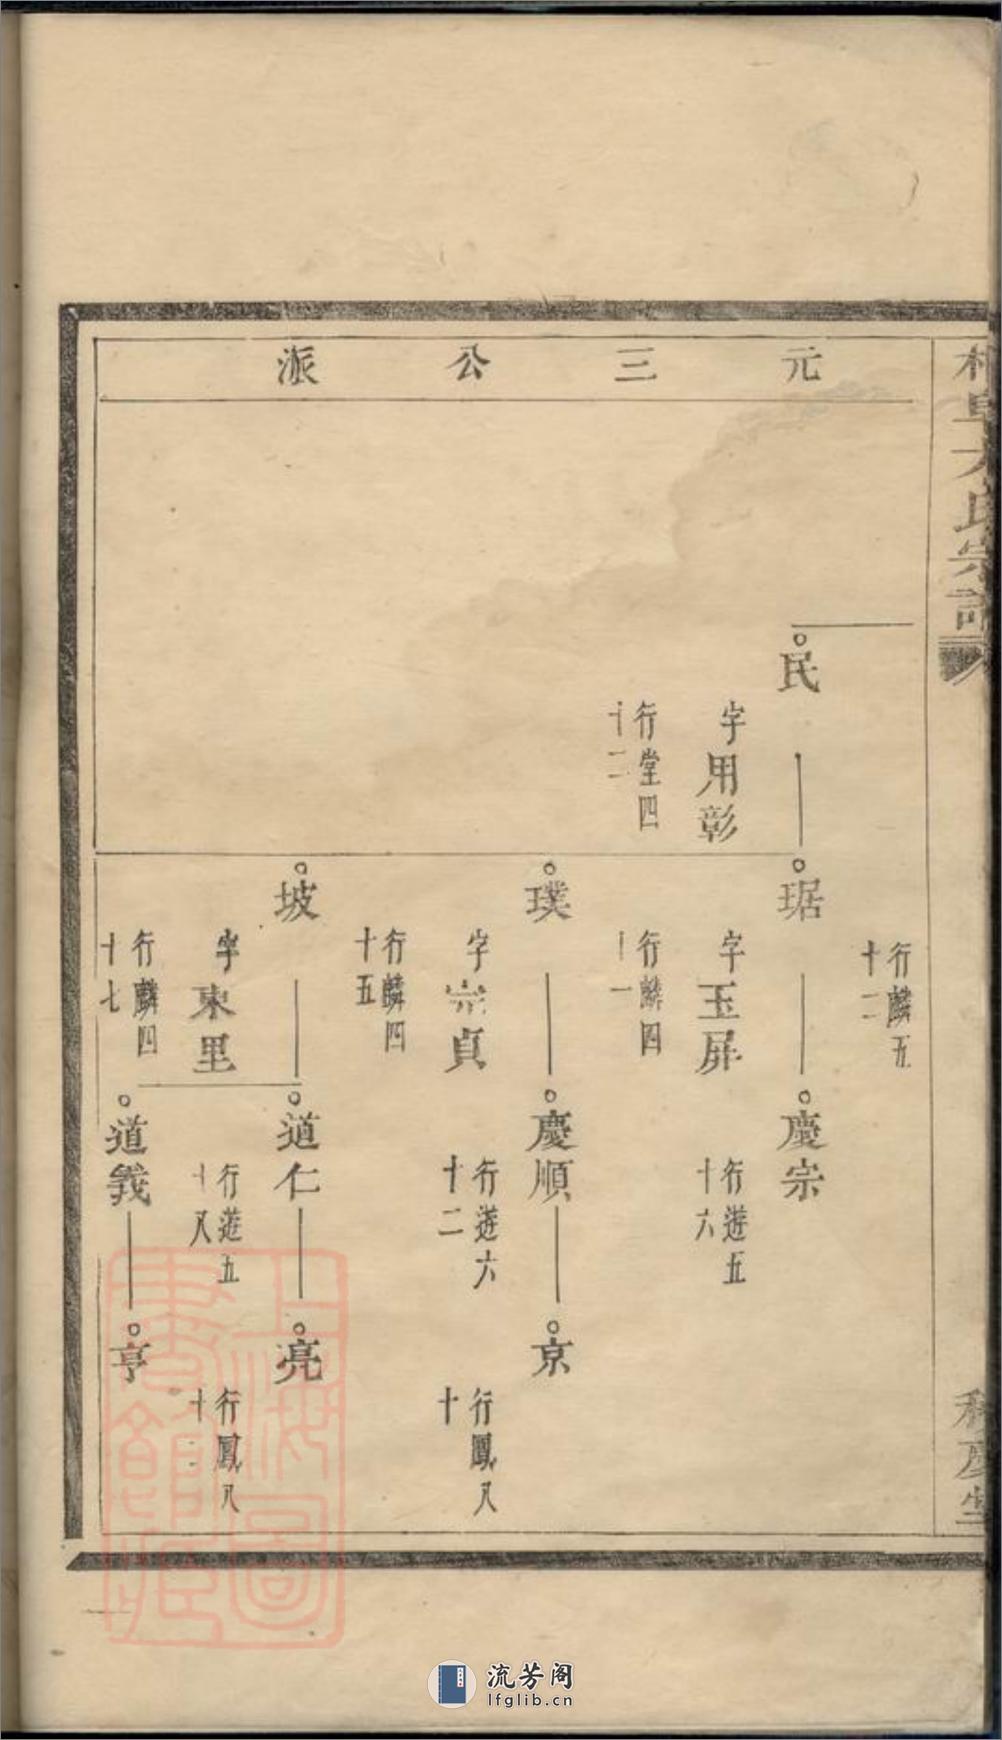 氏宗譜
元三公派
行麟五十二
民
字用彰
行堂四十二
琚
字玉屏
行麟四十一
璞
字崇貞
行麟四十五
坡
字東里
行麟四十七
慶宗
行遊五十六
慶順
行遊六十二
道仁
行遊五十八
道義
京
行鳳八十
亮
行鳳八十
亨
上海圖書館藏
流芳阁
lfglib.cn